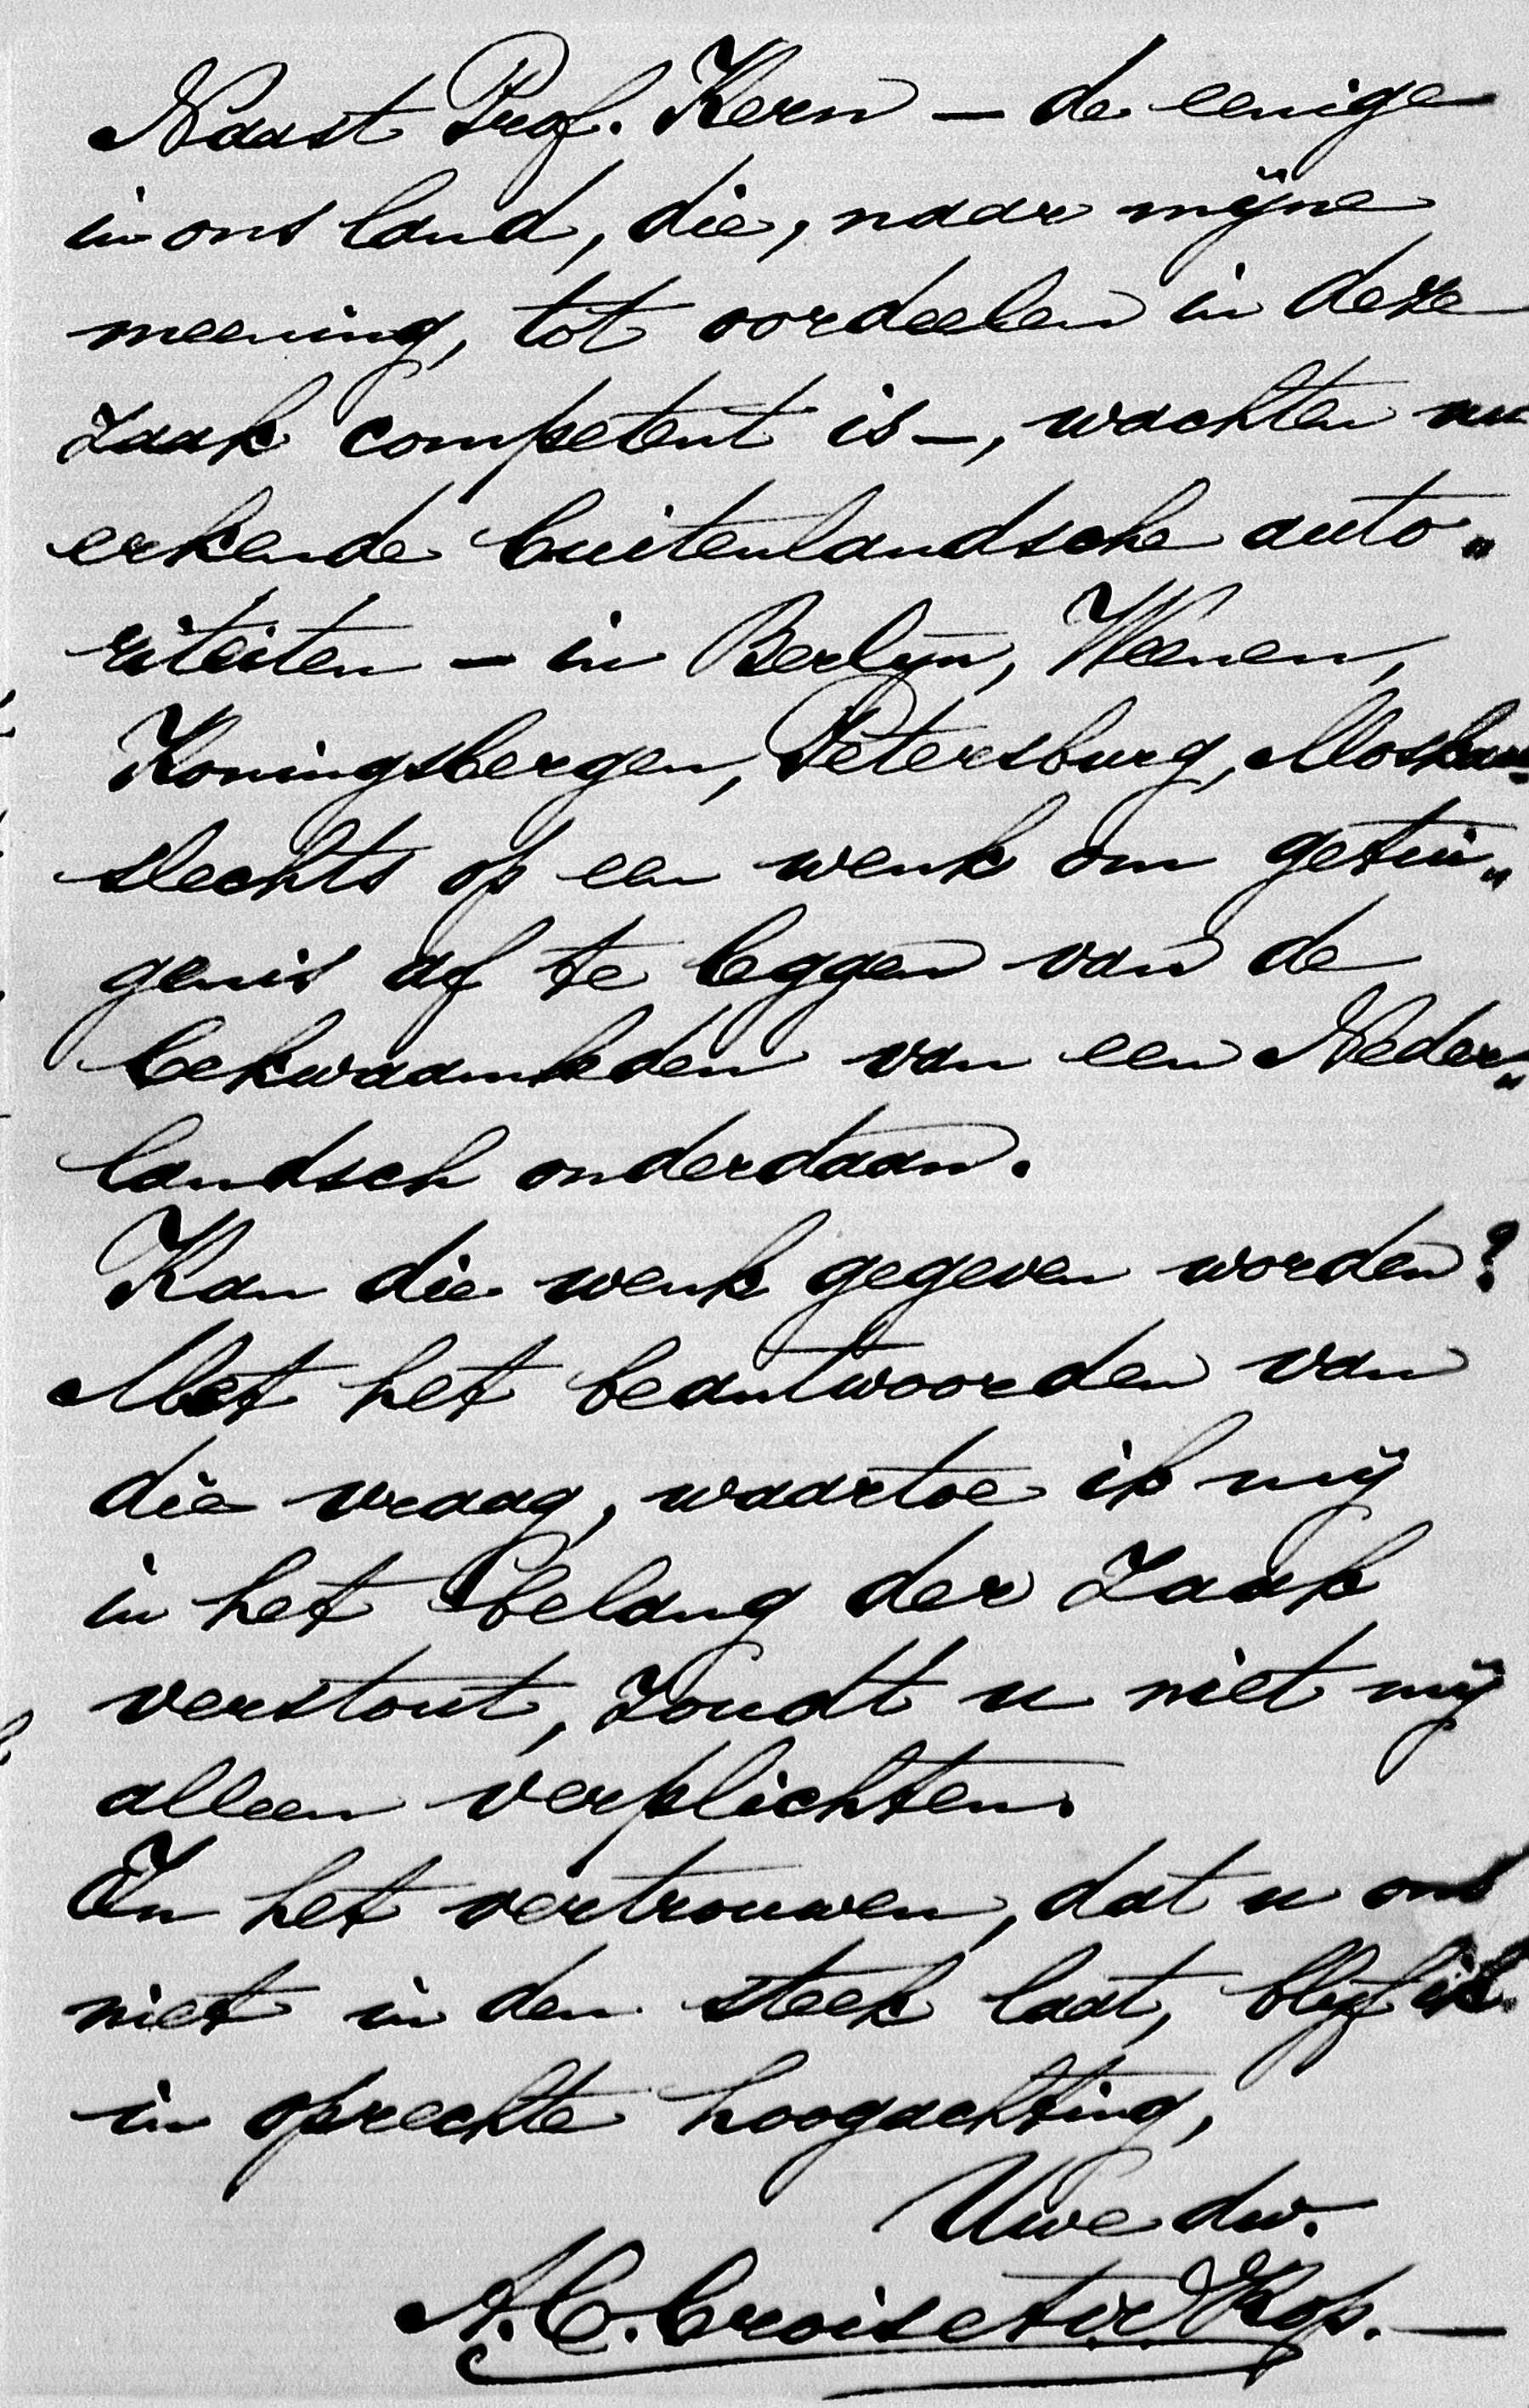 Naast Prof. Kern – de eenige
in ons land, die, naar mijne
meening, tot oordeelen in deze
zaak competent is –, wachten nu
erkende buitenlandsche auto„
riteiten – in Berlijn, Weenen,
Koningsbergen, Petersburg, Moskau –
slechts op een wenk om getui„
genis af te leggen van de
bekwaamheden van een Neder„
landsch onderdaan.
Kan die wenk gegeven worden?
Met het beantwoorden van
die vraag, waartoe ik mij
in het belang der zaak
verstout, zoudt u niet mij
alleen verplichten.
In het vertrouwen, dat u ons
niet in den steek laat, blijf ik
in oprechte hoogachting,
Uwe dw.
A. C. Croiset v. d. Kop. –